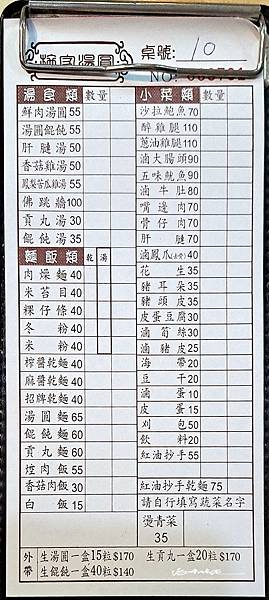 湯圓
桌號: 10
NO.
湯食類 數量
鮮肉湯圓 55
湯圓餛飩 55
肝腱湯 50
香菇雞湯 50
鳳梨苦瓜雞湯 55
佛跳牆 100
貢丸湯 30
餛飩湯 35
麵飯類 乾 湯
肉燥麵 40
米苔目 40
粿仔條 40
冬粉 40
米粉 40
榨醬乾麵 40
麻醬乾麵 40
招牌乾麵 40
湯圓麵 65
餛飩麵 60
貢丸麵 60
焢肉飯 55
香菇肉飯 30
白飯 15
小菜類 數量
沙拉鮑魚 70
醉雞腿 110
蔥油雞腿 110
滷大腸頭 90
五味魷魚 90
滷牛肚 80
嘴邊肉 70
骨仔肉 70
肝腱 70
滷鳳爪 40
花生 35
豬耳朵 35
豬頭皮 35
皮蛋豆腐 30
滷筍絲 30
滷豬皮 25
海帶 20
豆干 20
滷蛋 10
皮蛋 15
刈包 50
飲料 20
紅油抄手 55
紅油抄手乾麵 75
請自行填寫蔬菜名字
燙青菜
35
外帶 生湯圓一盒15粒$170 生貢丸一盒20粒$170
生餛飩一盒40粒$140